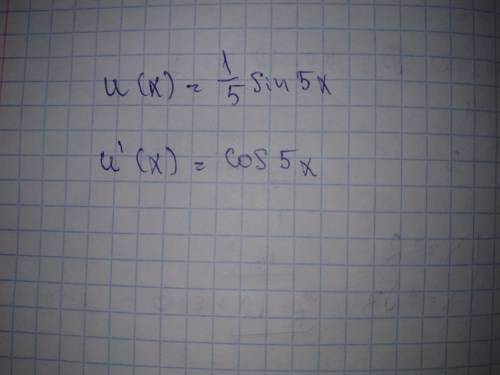 u(x) = 1/5 sin 5x
u'(x) = cos 5x